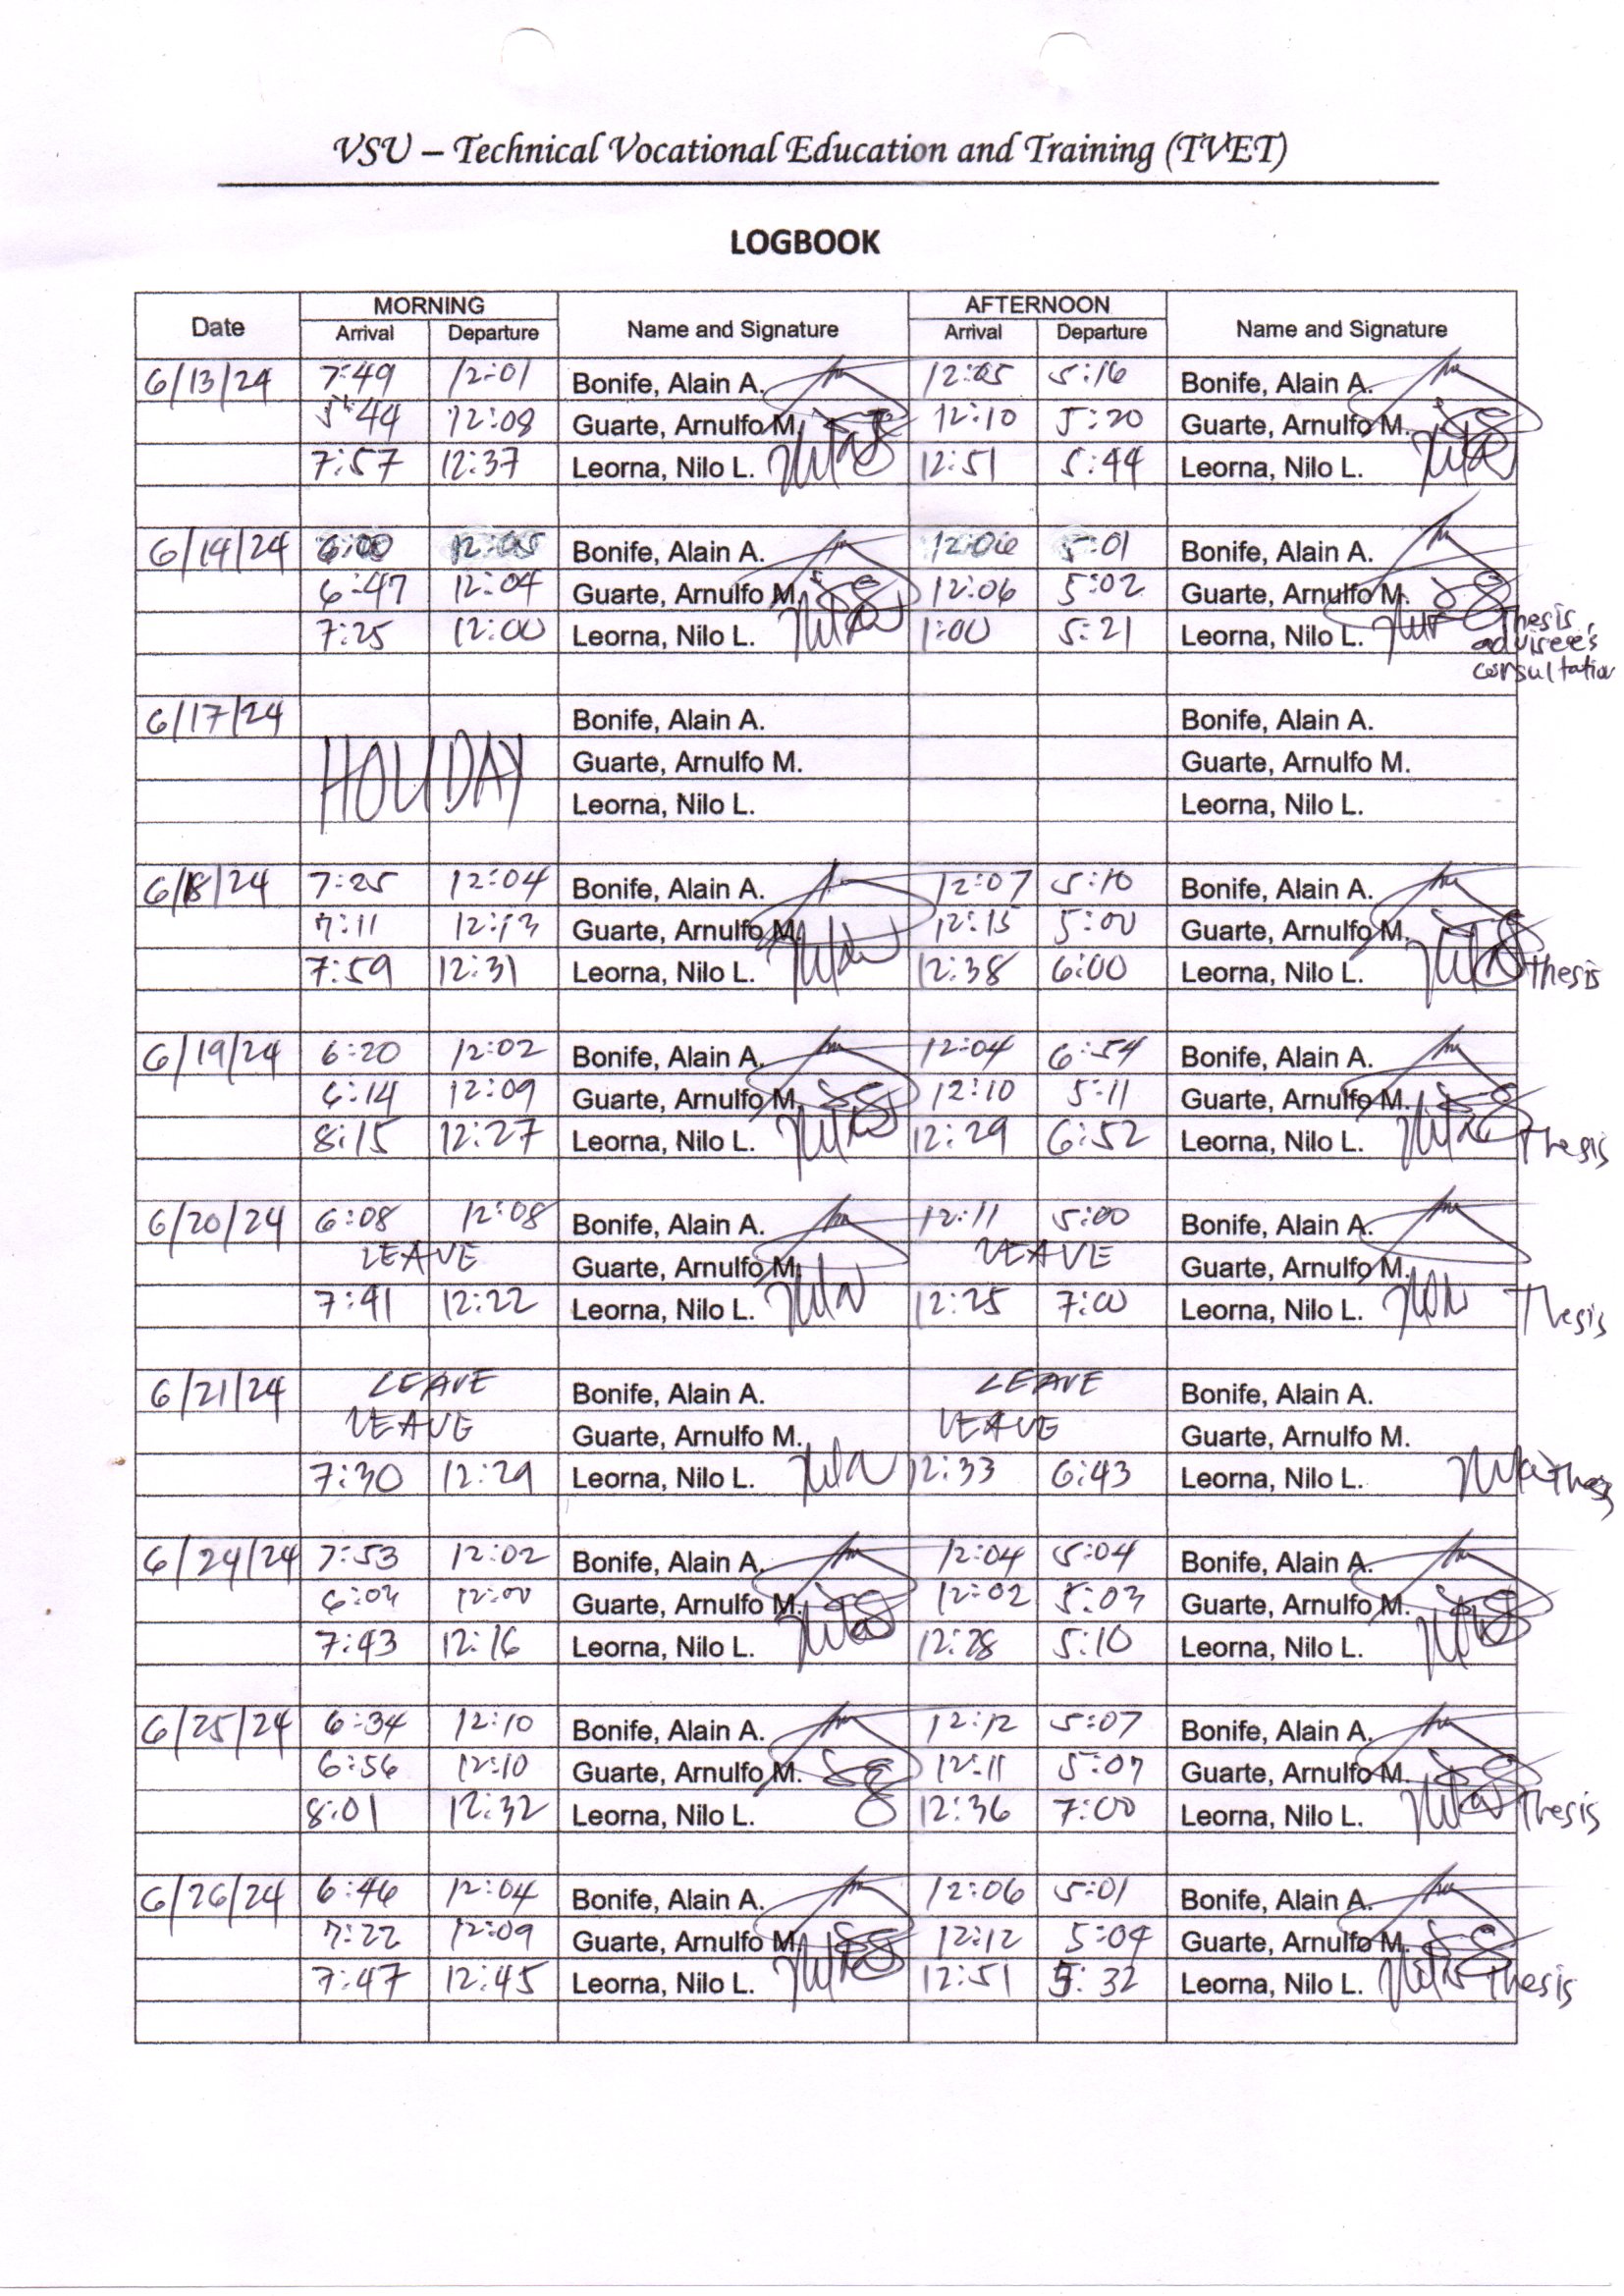 VSU – Technical Vocational Education and Training (TVET)
LOGBOOK
Date MORNING Name and Signature AFTERNOON Name and Signature
Arrival Departure Arrival Departure
6/13/24 7:49 12:01 Bonife, Alain A. 12:05 5:16 Bonife, Alain A.
5:44 12:08 Guarte, Arnulfo M. 12:10 5:20 Guarte, Arnulfo M.
7:57 12:37 Leorna, Nilo L. 12:51 5:44 Leorna, Nilo L.
6/14/24 6:00 12:05 Bonife, Alain A. 12:06 5:01 Bonife, Alain A.
6:47 12:04 Guarte, Arnulfo M. 12:06 5:02 Guarte, Arnulfo M.
7:25 12:00 Leorna, Nilo L. 1:00 5:21 Leorna, Nilo L. Thesis
advisee's
consultation
6/17/24 Bonife, Alain A. Bonife, Alain A.
HOLIDAY Guarte, Arnulfo M. Guarte, Arnulfo M.
Leorna, Nilo L. Leorna, Nilo L.
6/18/24 7:25 12:04 Bonife, Alain A. 12:07 5:10 Bonife, Alain A.
7:11 12:13 Guarte, Arnulfo M. 12:15 5:00 Guarte, Arnulfo M.
7:59 12:31 Leorna, Nilo L. 12:38 6:00 Leorna, Nilo L. Thesis
6/19/24 6:20 12:02 Bonife, Alain A. 12:04 6:54 Bonife, Alain A.
6:14 12:09 Guarte, Arnulfo M. 12:10 5:11 Guarte, Arnulfo M.
8:15 12:27 Leorna, Nilo L. 12:29 6:52 Leorna, Nilo L. Thesis
6/20/24 6:08 12:08 Bonife, Alain A. 12:11 5:00 Bonife, Alain A.
LEAVE Guarte, Arnulfo M. LEAVE Guarte, Arnulfo M.
7:41 12:22 Leorna, Nilo L. 12:25 7:00 Leorna, Nilo L. Thesis
6/21/24 LEAVE Bonife, Alain A. LEAVE Bonife, Alain A.
LEAVE Guarte, Arnulfo M. LEAVE Guarte, Arnulfo M.
7:30 12:29 Leorna, Nilo L. 12:33 6:43 Leorna, Nilo L. Thesis
6/24/24 7:53 12:02 Bonife, Alain A. 12:04 5:04 Bonife, Alain A.
6:03 12:00 Guarte, Arnulfo M. 12:02 5:03 Guarte, Arnulfo M.
7:43 12:16 Leorna, Nilo L. 12:28 5:10 Leorna, Nilo L.
6/25/24 6:34 12:10 Bonife, Alain A. 12:12 5:07 Bonife, Alain A.
6:56 12:10 Guarte, Arnulfo M. 12:11 5:07 Guarte, Arnulfo M.
8:01 12:32 Leorna, Nilo L. 12:36 7:00 Leorna, Nilo L. Thesis
6/26/24 6:46 12:04 Bonife, Alain A. 12:06 5:01 Bonife, Alain A.
7:22 12:09 Guarte, Arnulfo M. 12:12 5:04 Guarte, Arnulfo M.
7:47 12:45 Leorna, Nilo L. 12:51 5:32 Leorna, Nilo L. Thesis